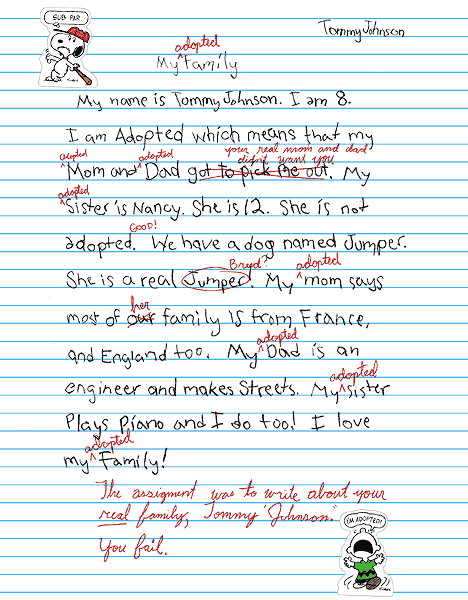 SUB PAR.
Tommy Johnson
adopted
My ^ Family
My name is Tommy Johnson. I am 8.
I am Adopted which means that my
adopted adopted your real mom and dad
didn't want you
^ Mom and ^ Dad got to pick me out. My
adopted
^ Sister is Nancy. She is 12. She is not
GOOD!
adopted. We have a dog named Jumper.
Bryd? adopted
She is a real Jumper. My ^ mom says
her
most of our family is from France,
adopted
and England too. My ^ Dad is an
adopted
engineer and makes Streets. My ^ Sister
Plays Piano and I do too! I love
adopted
my ^ Family!
The assigment was to write about your
real family, Tommy "Johnson."
You fail.
I'M ADOPTED!